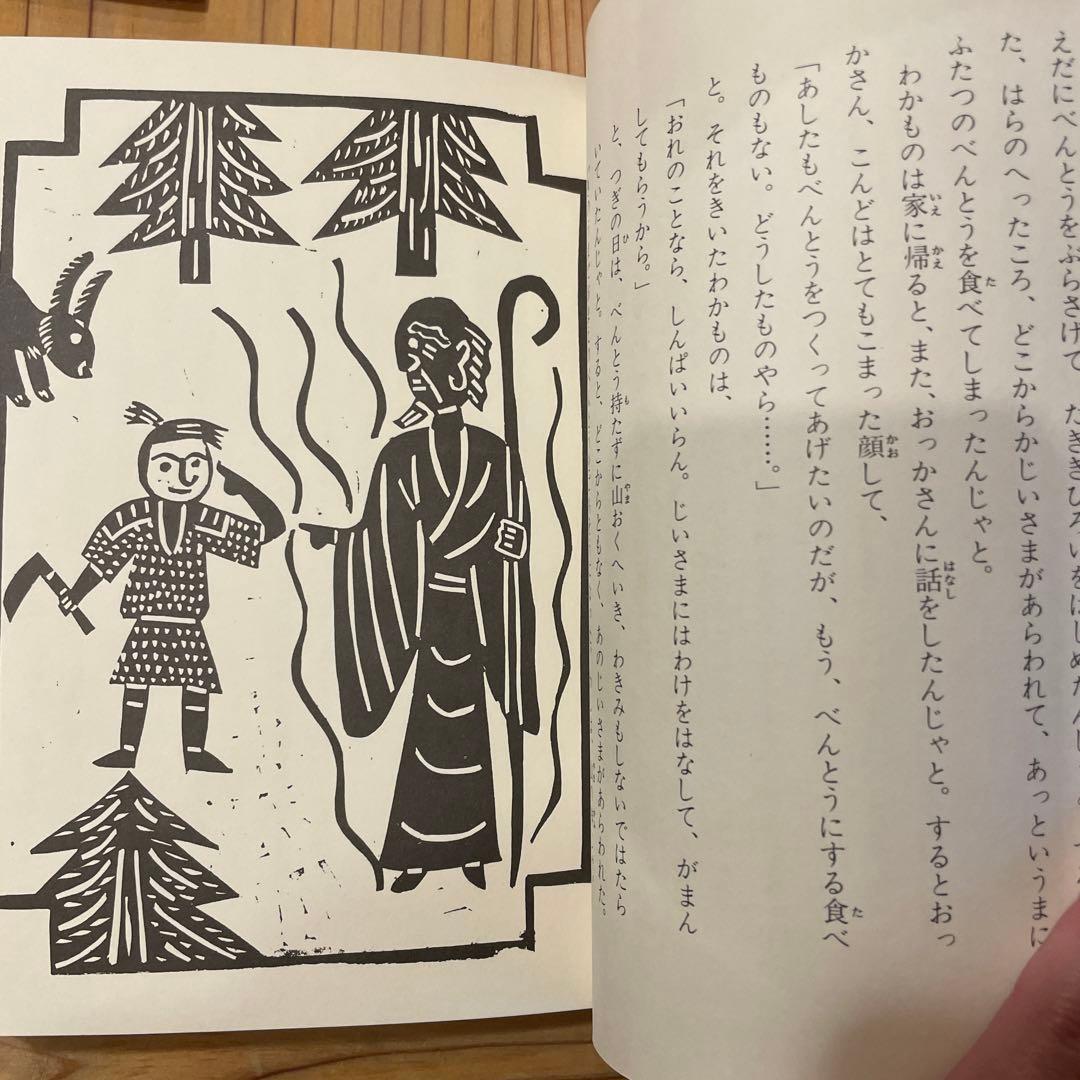 えだにべんとうをぶらさげて　たきぎひろいをはじめたんじ
た、はらのへったころ、どこからかじいさまがあらわれて、あっというまに
ふたつのべんとうを食べてしまったんじゃと。
わかものは家に帰ると、また、おっかさんに話をしたんじゃと。するとおっ
かさん、こんどはとてもこまった顔して、
「あしたもべんとうをつくってあげたいのだが、もう、べんとうにする食べ
ものもない。どうしたものやら……。」
と。それをきいたわかものは、
「おれのことなら、しんぱいいらん。じいさまにはわけをはなして、がまん
してもらうから。」
と、つぎの日は、べんとう持たずに山おくへいき、わきみもしないではたら
いていたんじゃと。すると、どこからともなく、あのじいさまがあらわれた。